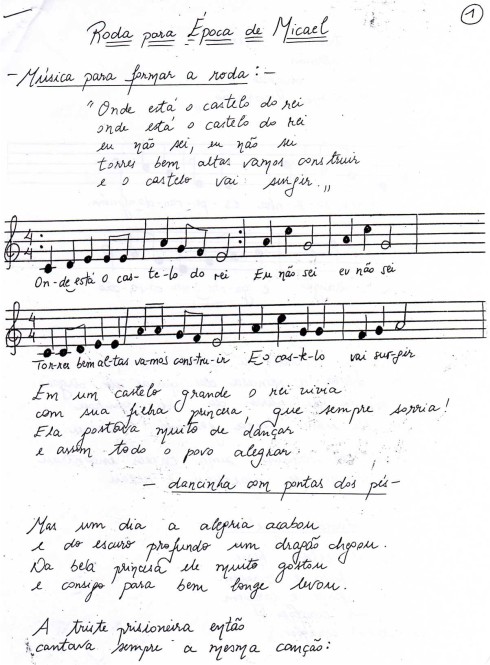 1
Roda para Época de Micael
- Música para formar a roda: -
"Onde está o castelo do rei
onde está o castelo do rei
eu não sei, eu não sei
torres bem altas vamos construir
e o castelo vai surgir."
4 4
On-de está o cas-te-lo do rei Eu não sei eu não sei
4 4
Tor-res bem al-tas va-mos cons-tru-ir E o cas-te-lo vai sur-gir
Em um castelo grande o rei vivia
com sua filha princesa, que sempre sorria!
Ela gostava muito de dançar
e assim todo o povo alegrar.
- dancinha com pontas dos pés -
Mas um dia a alegria acabou
e do escuro profundo um dragão chegou.
Da bela princesa ele muito gostou
e consigo para bem longe levou.
A triste prisioneira então
cantava sempre a mesma canção: